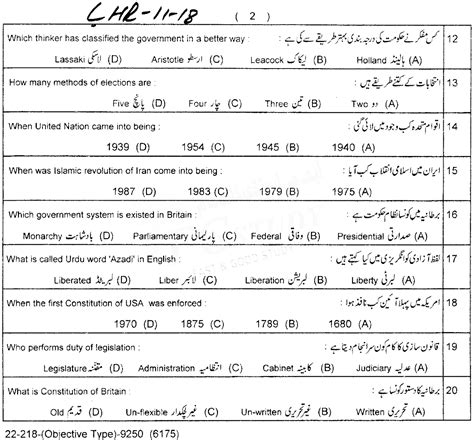 LHR-11-18 ( 2 )
Which thinker has classified the government in a better way : کس مفکر نے حکومت کی درجہ بندی بہتر طریقے سے کی ہے : 12
Lassaki لاسکی (D) Aristotle ارسطو (C) Leacock لیکاک (B) Holland ہالینڈ (A)
How many methods of elections are : انتخابات کے کتنے طریقے ہیں : 13
Five پانچ (D) Four چار (C) Three تین (B) Two دو (A)
When United Nation came into being : اقوام متحدہ کب وجود میں لائی گئی : 14
1939 (D) 1954 (C) 1945 (B) 1940 (A)
When was Islamic revolution of Iran come into being : ایران میں اسلامی انقلاب کب آیا : 15
1987 (D) 1983 (C) 1979 (B) 1975 (A)
Which government system is existed in Britain : برطانیہ میں کونسا نظام حکومت ہے : 16
Monarchy بادشاہت (D) Parliamentary پارلیمانی (C) Federal وفاقی (B) Presidential صدارتی (A)
What is called Urdu word 'Azadi' in English : لفظ آزادی کو انگریزی میں کیا کہتے ہیں : 17
Liberated لبرٹڈ (D) Liber لائبر (C) Liberation لبریشن (B) Liberty لبرٹی (A)
When the first Constitution of USA was enforced : امریکہ میں پہلا آئین کب نافذ ہوا : 18
1970 (D) 1875 (C) 1789 (B) 1680 (A)
Who performs duty of legislation : قانون سازی کا کام کون سرانجام دیتا ہے : 19
Legislature مقننہ (D) Administration انتظامیہ (C) Cabinet کابینہ (B) Judiciary عدلیہ (A)
What is Constitution of Britain : برطانیہ کا دستور کونسا ہے : 20
Old قدیم (D) Un-flexible غیر لچکدار (C) Un-written غیر تحریری (B) Written تحریری (A)
22-218-(Objective Type)-9250 (6175)